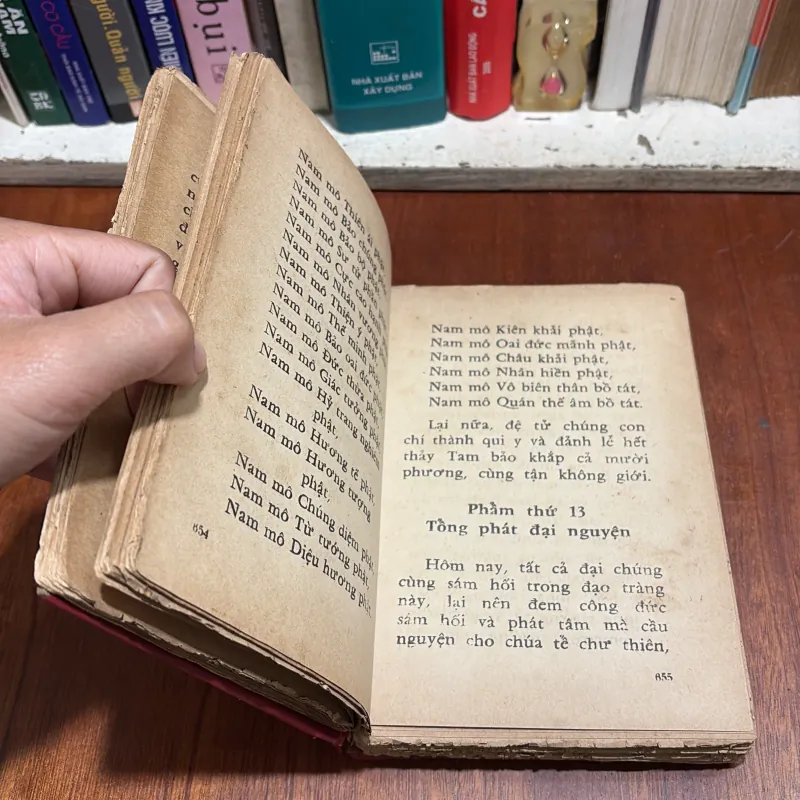 NHÀ XUẤT BẢN
XÂY DỰNG
bụi
Nam mô Thiện ái phật,
Nam mô Bảo
Nam mô Bảo
Nam mô Sư tử phật,
Nam mô Cực cao
Nam mô Nhân vương phật,
Nam mô Thiện ý phật,
Nam mô Thế minh phật,
Nam mô Bảo oai đức phật,
Nam mô Đức thừa phật,
Nam mô Giác tưởng phật,
Nam mô Hỷ trang nghiêm
phật,
Nam mô Hương tế phật,
Nam mô Hương tượng
phật,
Nam mô Chúng diệm phật,
Nam mô Từ tướng phật,
Nam mô Diệu hương phật,
654
Nam mô Kiên khải phật,
Nam mô Oai đức mãnh phật,
Nam mô Châu khải phật,
Nam mô Nhân hiền phật,
Nam mô Vô biên thân bồ tát,
Nam mô Quán thế âm bồ tát.
Lại nữa, đệ tử chúng con
chí thành qui y và đảnh lễ hết
thảy Tam bảo khắp cả mười
phương, cùng tận không giới.
Phẩm thứ 13
Tổng phát đại nguyện
Hôm nay, tất cả đại chúng
cùng sám hối trong đạo tràng
này, lại nên đem công đức
sám hối và phát tâm mà cầu
nguyện cho chúa tể chư thiên,
655